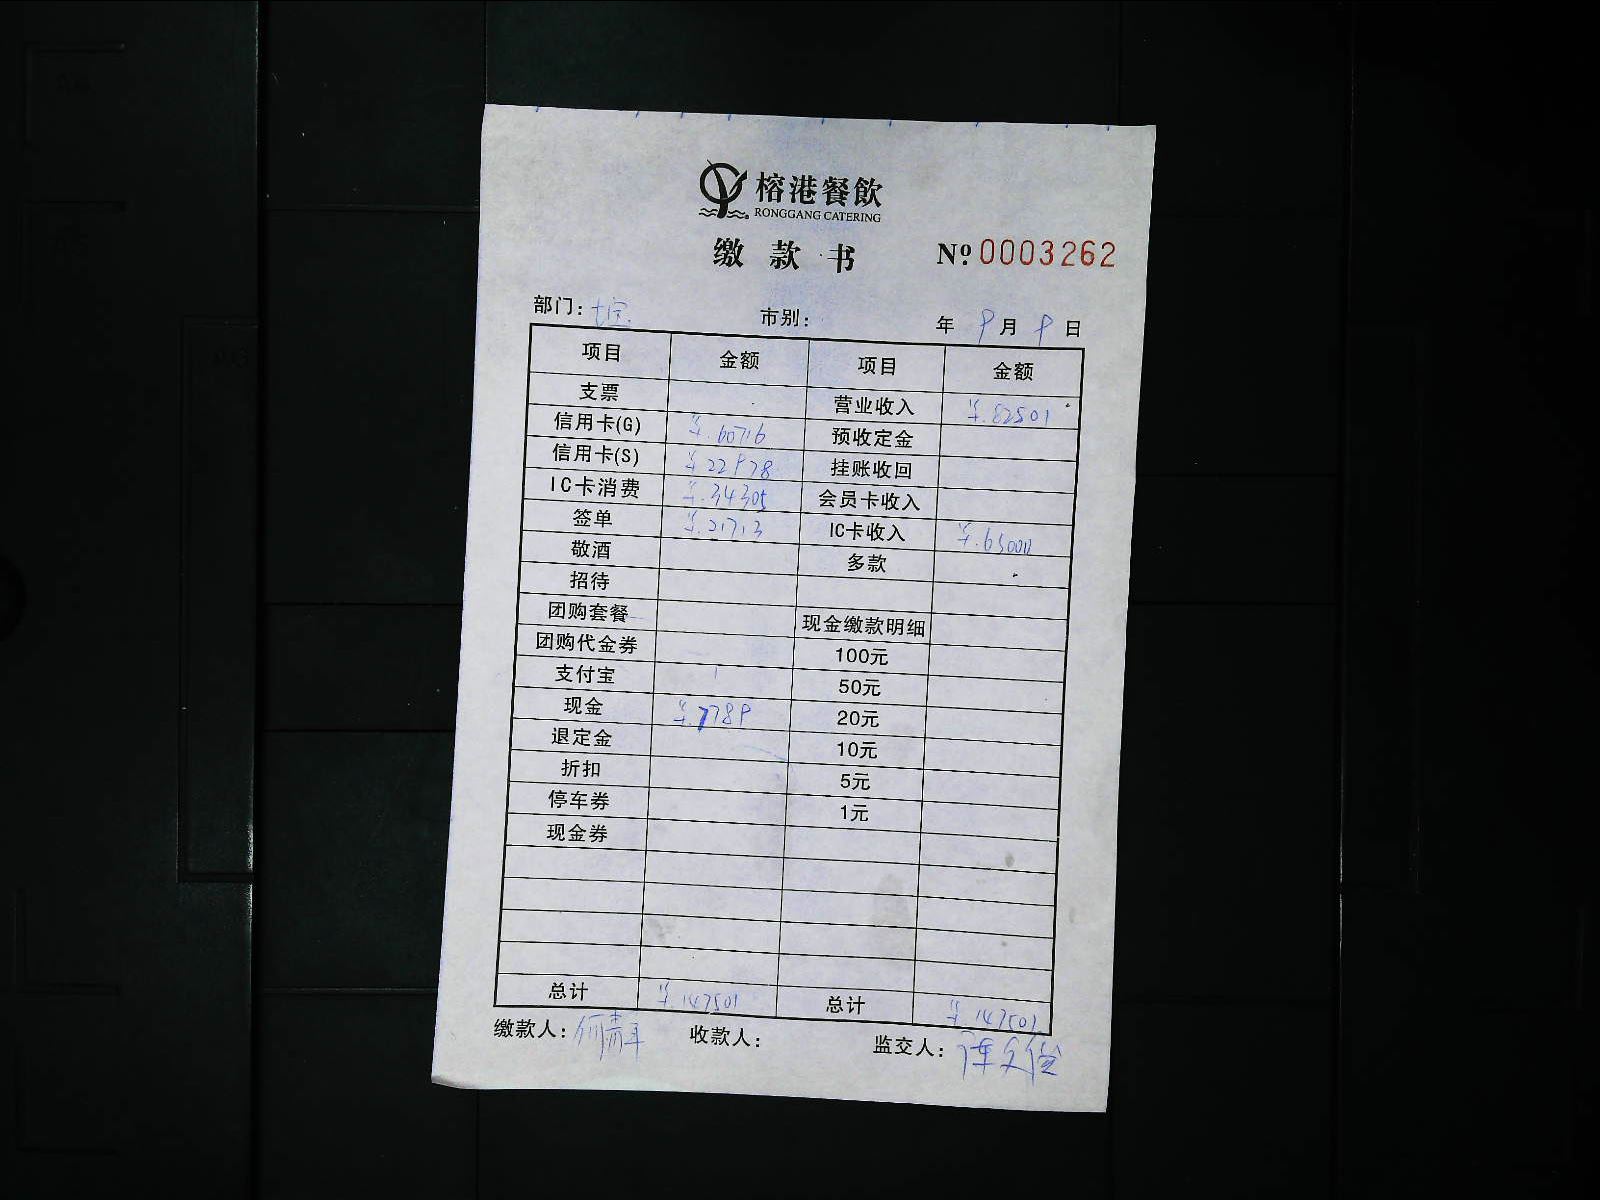 榕港餐飲
RONGGANG CATERING
缴款书 Nº 0003262
部门：七宝 市别： 年 9月 9日
项目 金额 项目 金额
支票 营业收入 ¥.82501
信用卡(G) ¥.60716 预收定金
信用卡(S) ¥.22978 挂账收回
IC卡消费 ¥.34305 会员卡收入
签单 ¥.21713 IC卡收入 ¥.65000
敬酒 多款
招待
团购套餐 现金缴款明细
团购代金券 100元
支付宝 50元
现金 ¥.7789 20元
退定金 10元
折扣 5元
停车券 1元
现金券
总计 ¥.147501 总计 ¥.147501
缴款人： 收款人： 监交人：